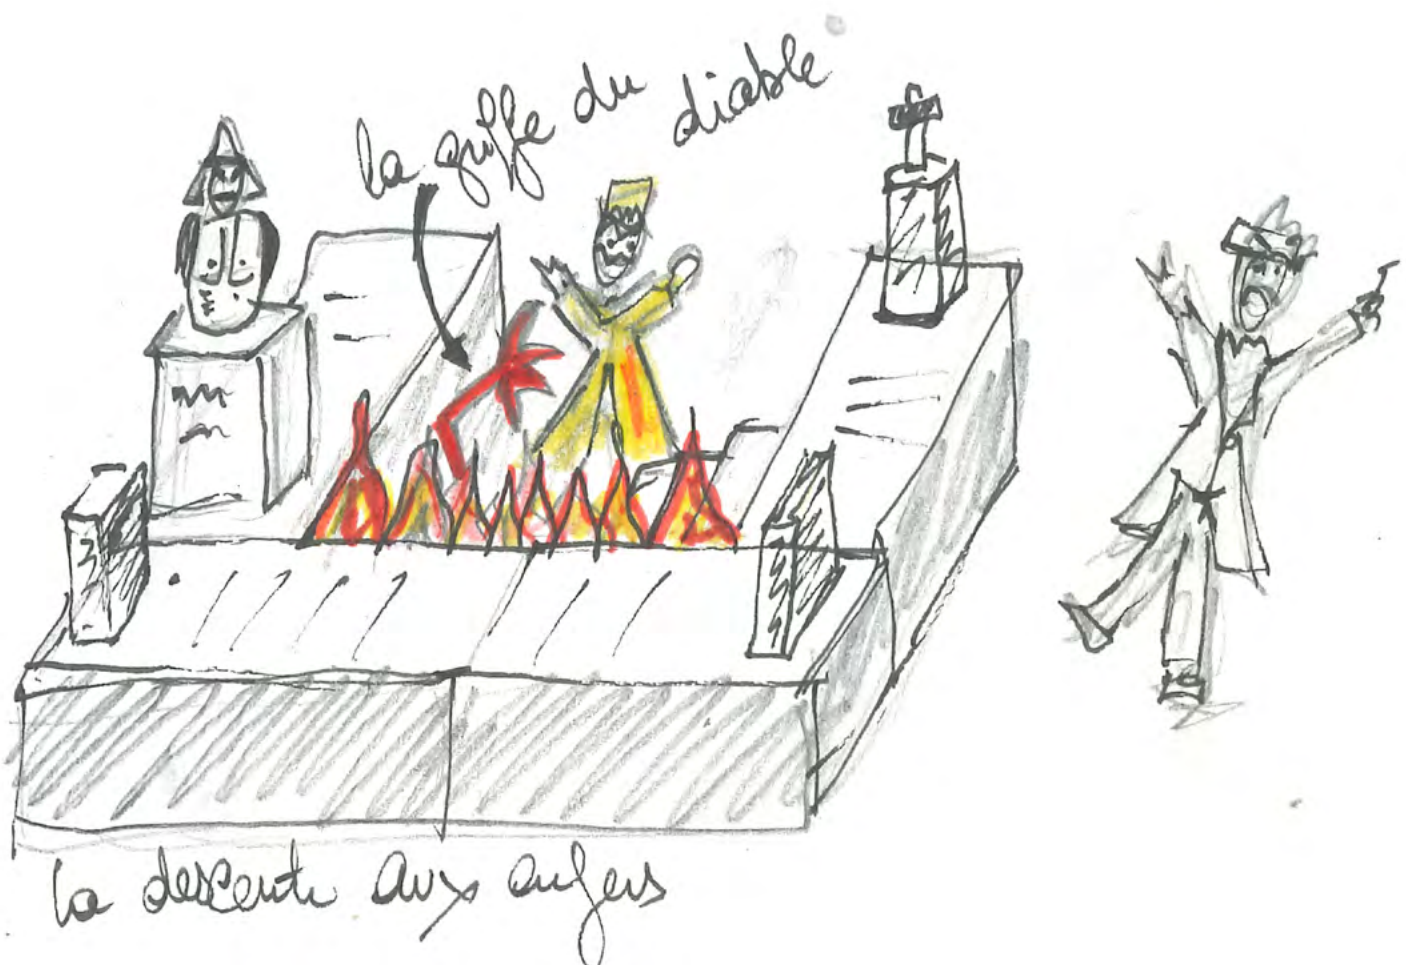 la griffe du diable
la descente aux enfers